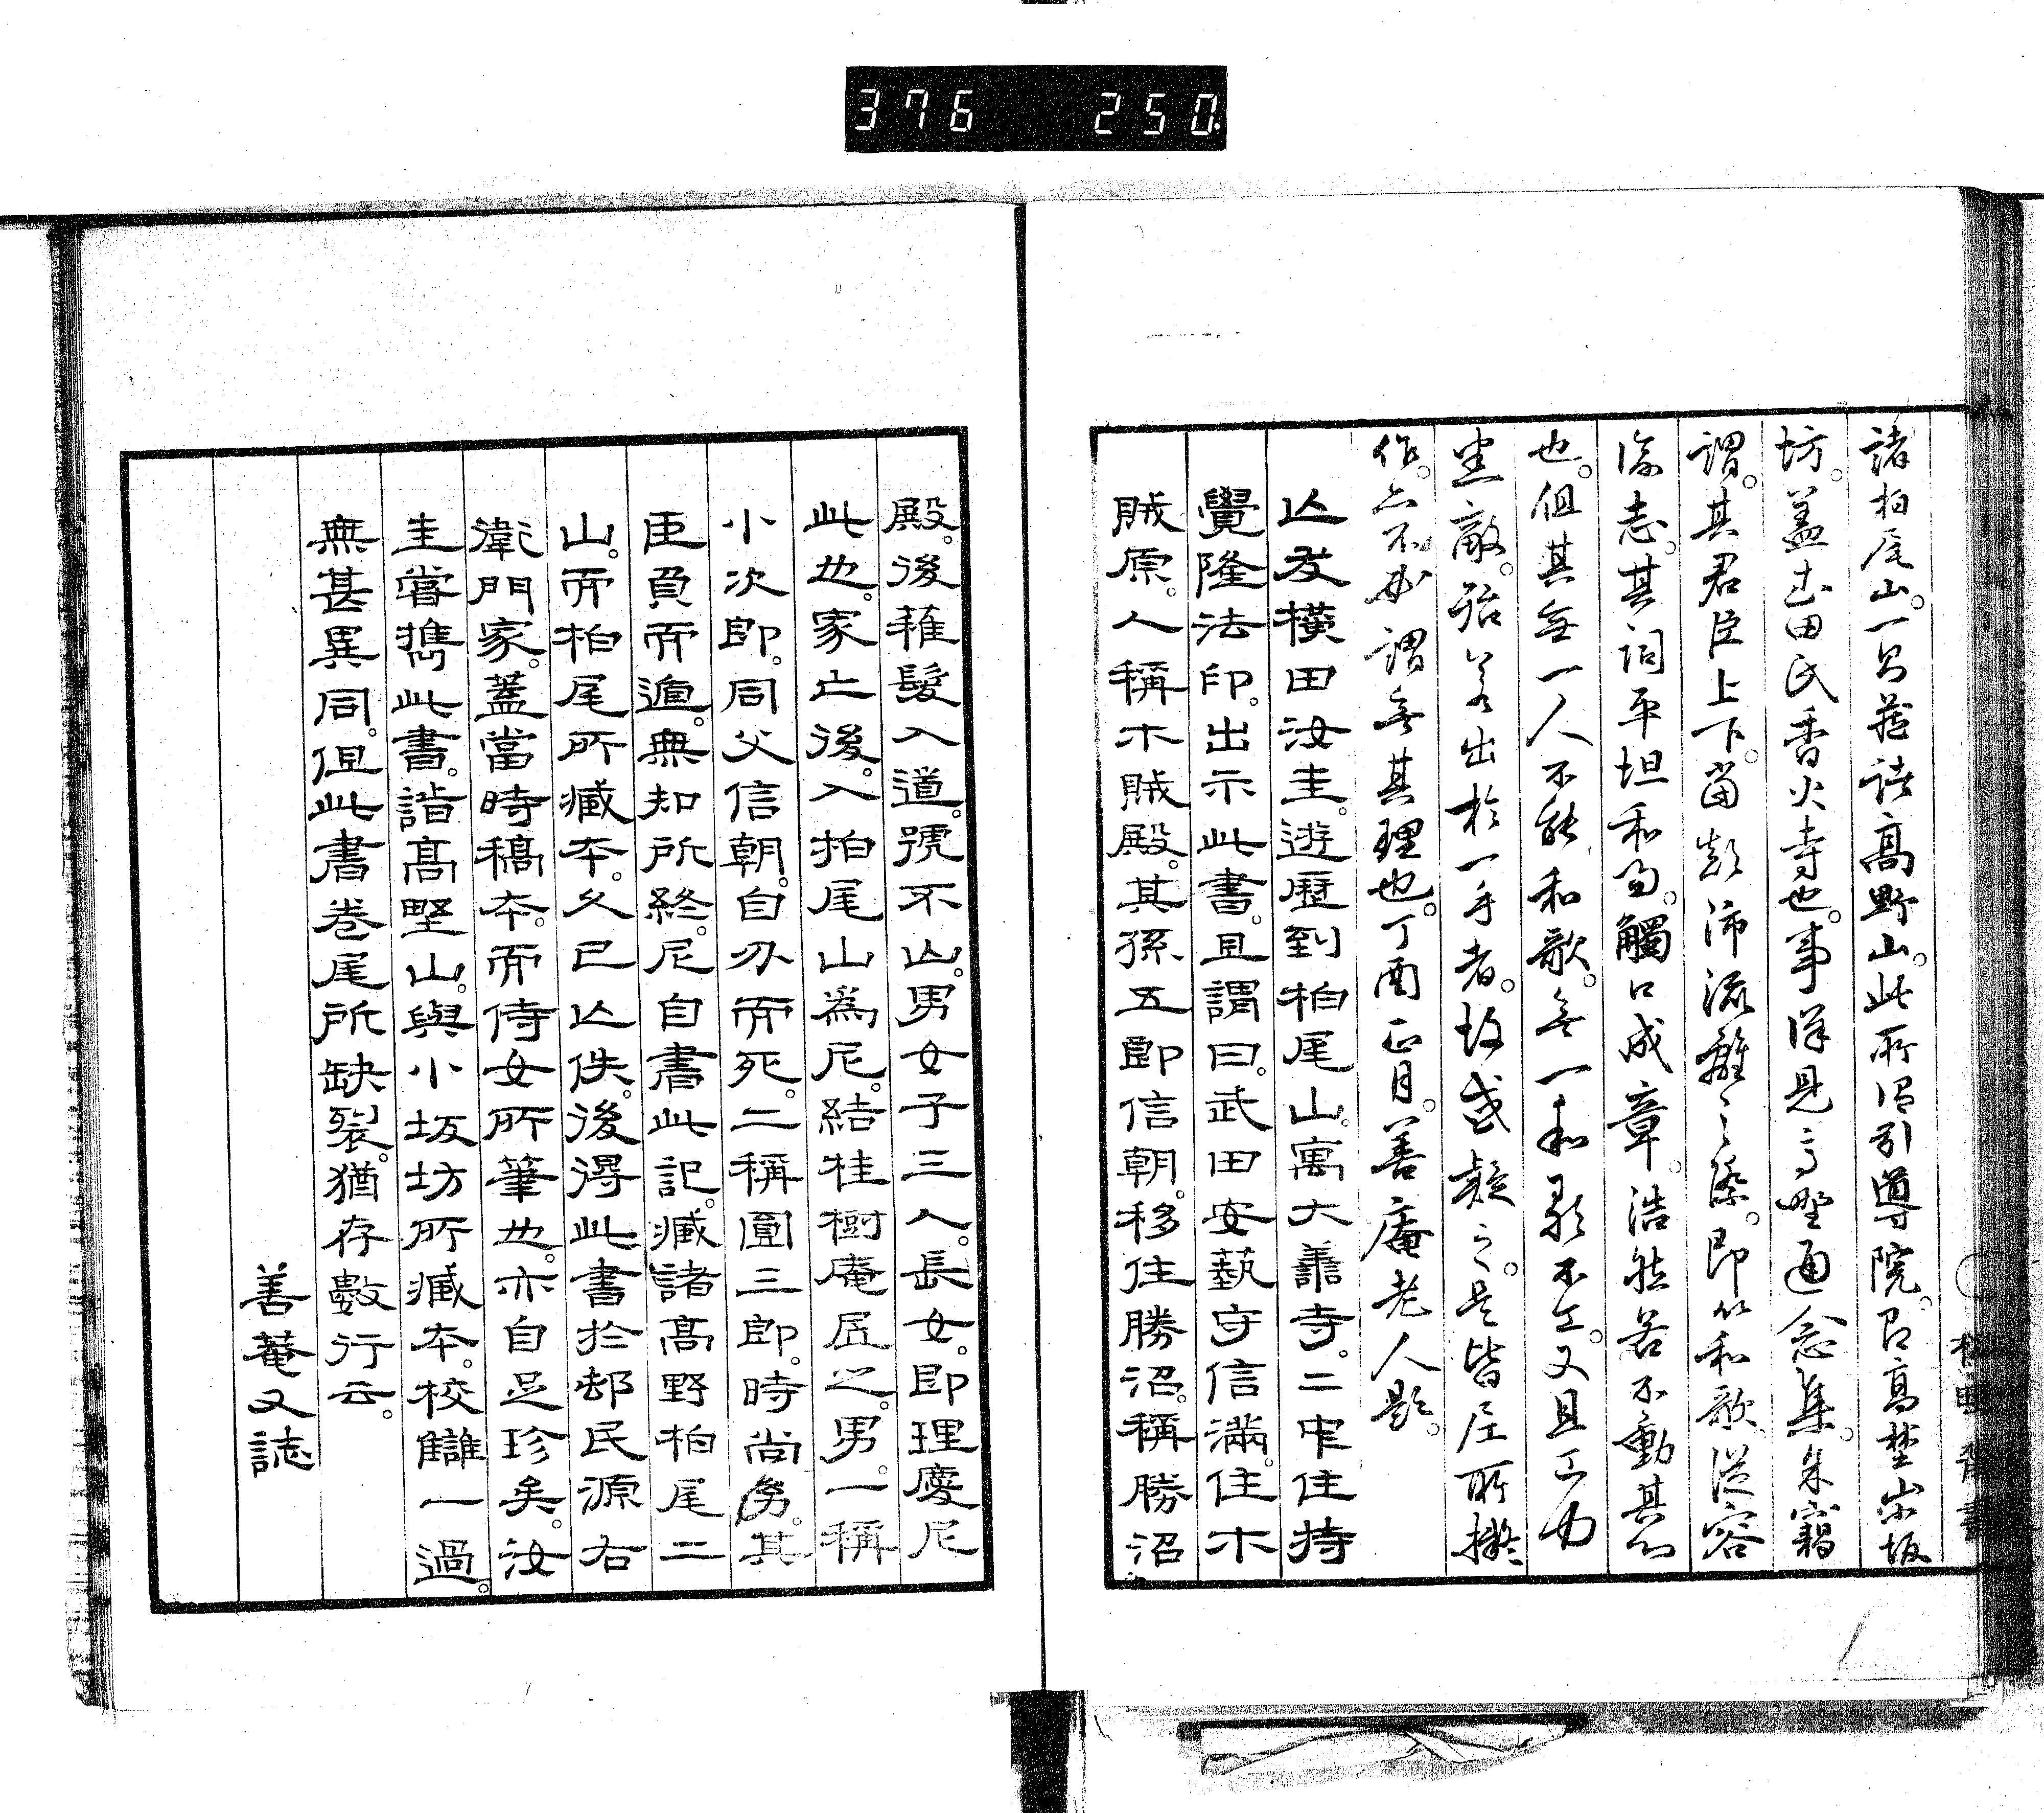 376 250.
諸柏尾山。一以藏諸高野山。此所謂引導院。即高埜小坂
坊。蓋武田氏香火寺也。事詳見高野通念集。朱竊
謂。其君臣上下。當顛沛流離之際。即以和歌從容
論志。其詞平坦和易。觸口成章。浩然若不動其心
也。但其無一人不能和歌。無一和歌不工。又且工力
悉敵。殆若出於一手者。故或疑之。是皆尼所擬
作。亦不可謂無其理也。丁酉正月。善庵老人題。
亡友橫田汝圭。遊歷到柏尾山。寓大善寺。二十世住持
覺隆法印。出示此書。且謂曰。武田安藝守信滿。住木
賊原。人稱木賊殿。其孫五郎信朝。移住勝沼。稱勝沼
殿。後薙髮入道。號不山。男女子三人。長女。即理慶尼
此也。家亡後。入柏尾山為尼。結桂樹庵居之。男。一稱
小次郎。同父信朝。自刃而死。二稱圓三郎。時尚幼。其
臣負而遁。無知所終。尼自書此記。藏諸高野柏尾二
山。而柏尾所藏本。久已亡佚。後得此書於邨民源右
衛門家。蓋當時稿本。而侍女所筆也。亦自足珍矣。汝
圭嘗攜此書。詣高埜山。與小坂坊所藏本。校讎一過。
無甚異同。但此書卷尾所缺裂。猶存數行云。
善菴又誌